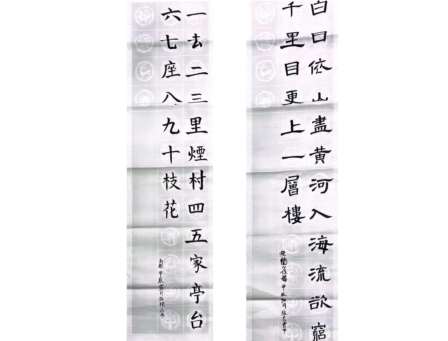 白日依山盡黄河入海流欲窮
千里目更上一層樓
一去二三里煙村四五家亭台
六七座八九十枝花